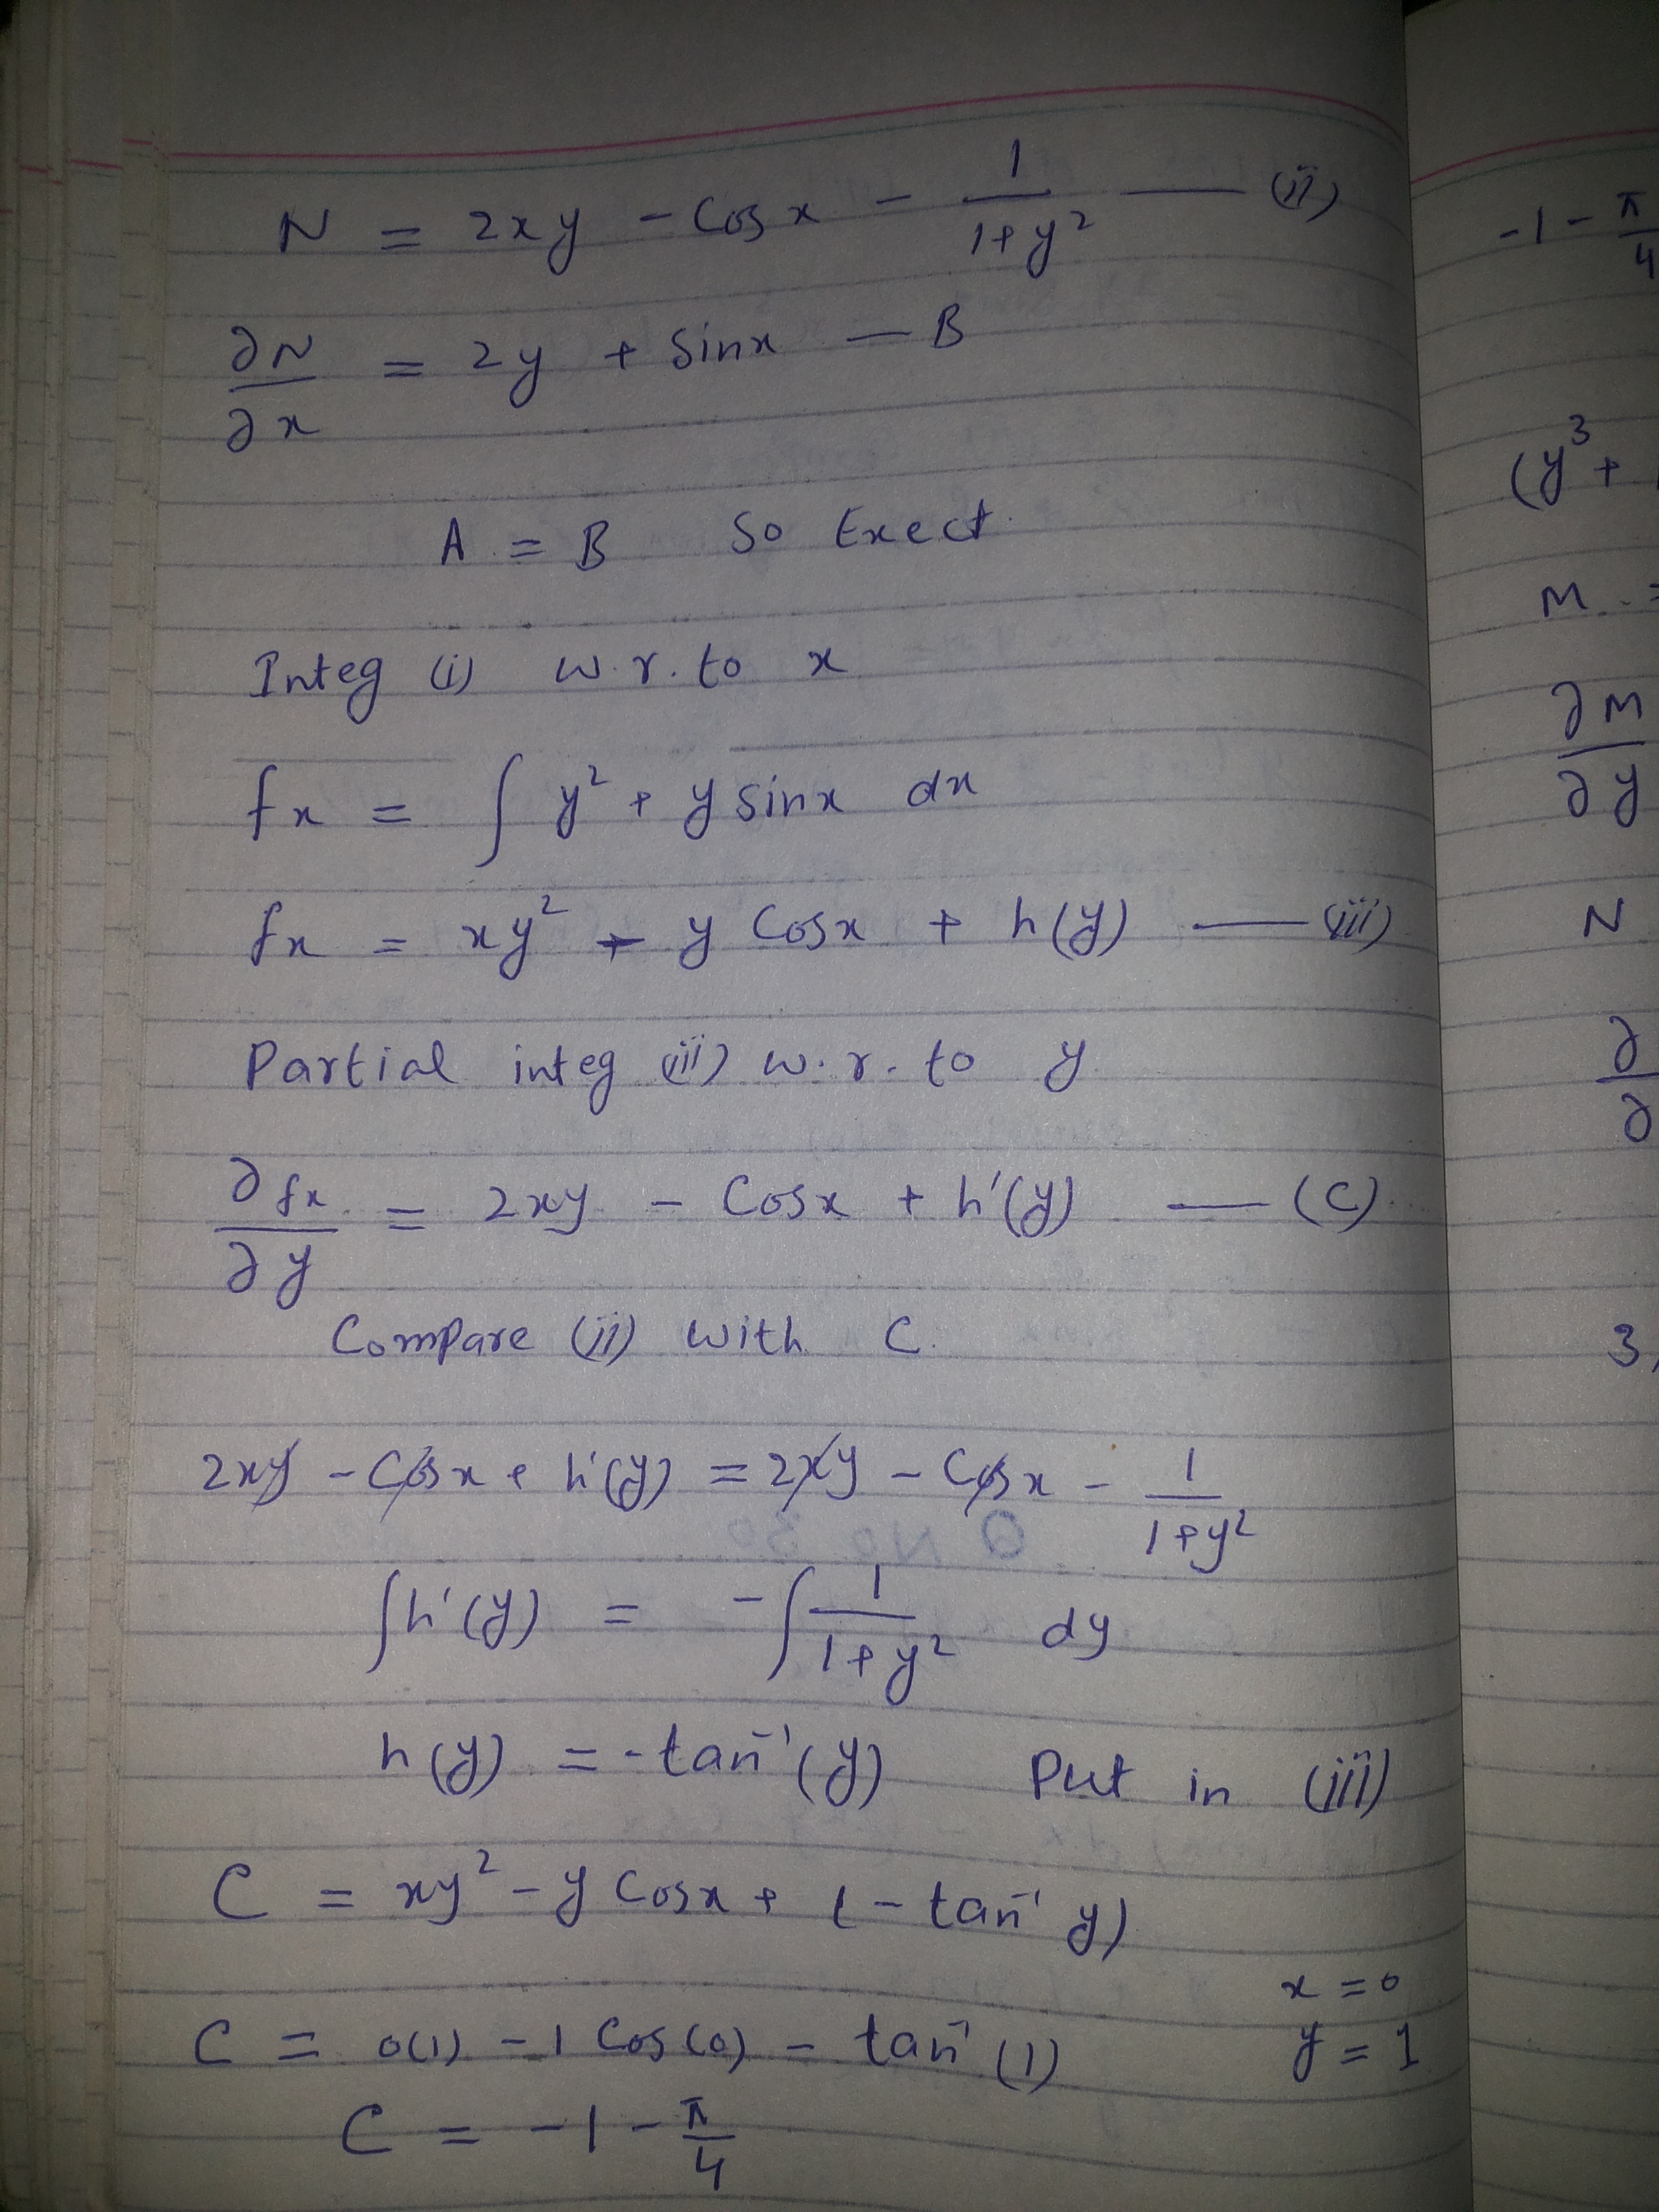 N = 2xy - Cosx - 1/(1+y²) — (ii)
∂N/∂x = 2y + Sinx — B
A = B So Exect.
Integ (i) w.r. to x
fx = ∫ y² + y sinx dx
fx = xy² - y Cosx + h(y) — (iii)
Partial integ (iii) w.r. to y
∂fx/∂y = 2xy - Cosx + h'(y) — (C)
Compare (ii) with C.
2xy - Cosx + h'(y) = 2xy - Cosx - 1/(1+y²)
∫h'(y) = -∫ 1/(1+y²) dy
h(y) = -tan⁻¹(y) Put in (iii)
C = xy² - y Cosx + (-tan⁻¹ y)
x = 0
C = 0(1) - 1 Cos(0) - tan⁻¹(1) y = 1
C = -1 - π/4
-1 - π/4
(y³ +
M =
∂M/∂y
N
∂/∂
3,